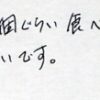 個ぐらい食べ
いです。